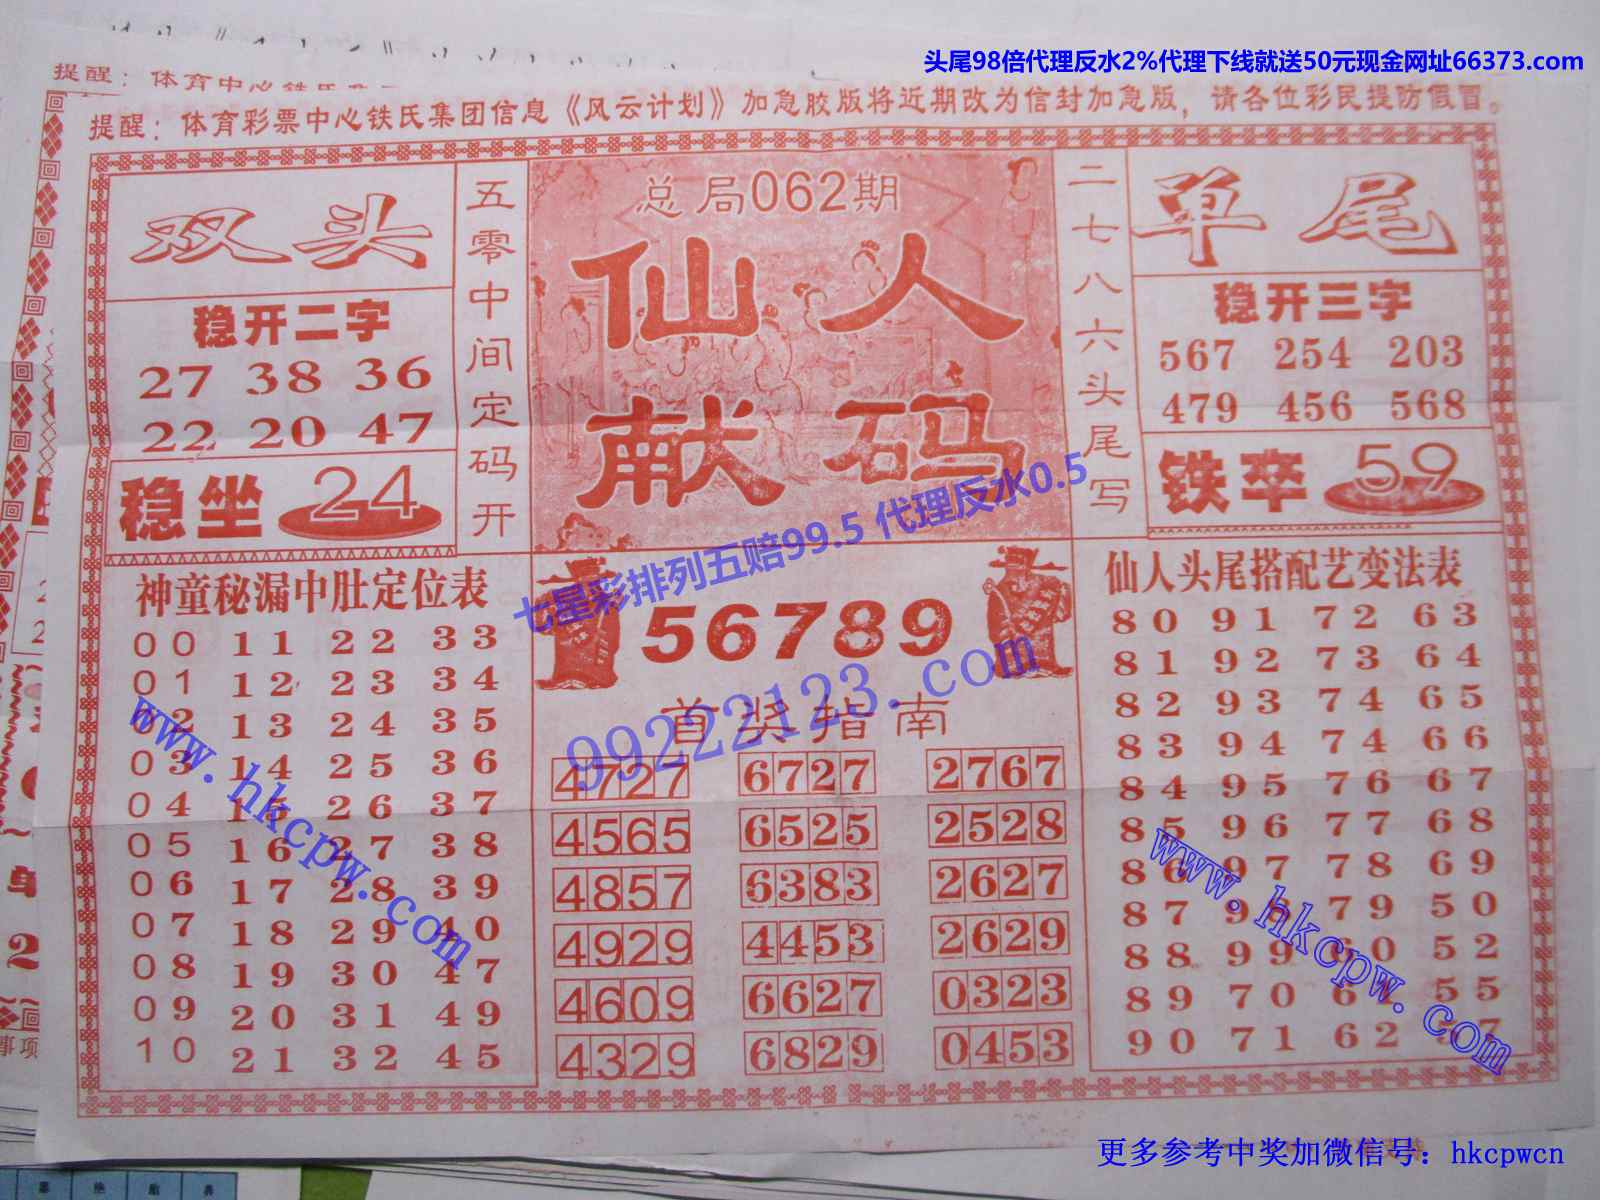 头尾98倍代理反水2%代理下线就送50元现金网址66373.com
提醒：体育中心铁氏
提醒：体育彩票中心铁氏集团信息《风云计划》加急胶版将近期改为信封加急版，请各位彩民提防假冒。
双头
稳开二字
27 38 36
22 20 47
稳坐 24
五零中间定码开
总局062期
仙人
献码
二七八六头尾写
单尾
稳开三字
567 254 203
479 456 568
铁卒 59
七星彩排列五赔99.5 代理反水0.5
神童秘漏中肚定位表
00 11 22 33
01 12 23 34
02 13 24 35
03 14 25 36
04 15 26 37
05 16 27 38
06 17 28 39
07 18 29 40
08 19 30 47
09 20 31 49
10 21 32 45
www.hkcpw.com
56789
99222123.com
首奖指南
4727 6727 2767
4565 6525 2528
4857 6383 2627
4929 4453 2629
4609 6627 0323
4329 6829 0453
仙人头尾搭配艺变法表
80 91 72 63
81 92 73 64
82 93 74 65
83 94 74 66
84 95 76 67
85 96 77 68
86 97 78 69
87 98 79 50
88 99 60 52
89 70 61 55
90 71 62
www.hkcpw.com
更多参考中奖加微信号：hkcpwcn